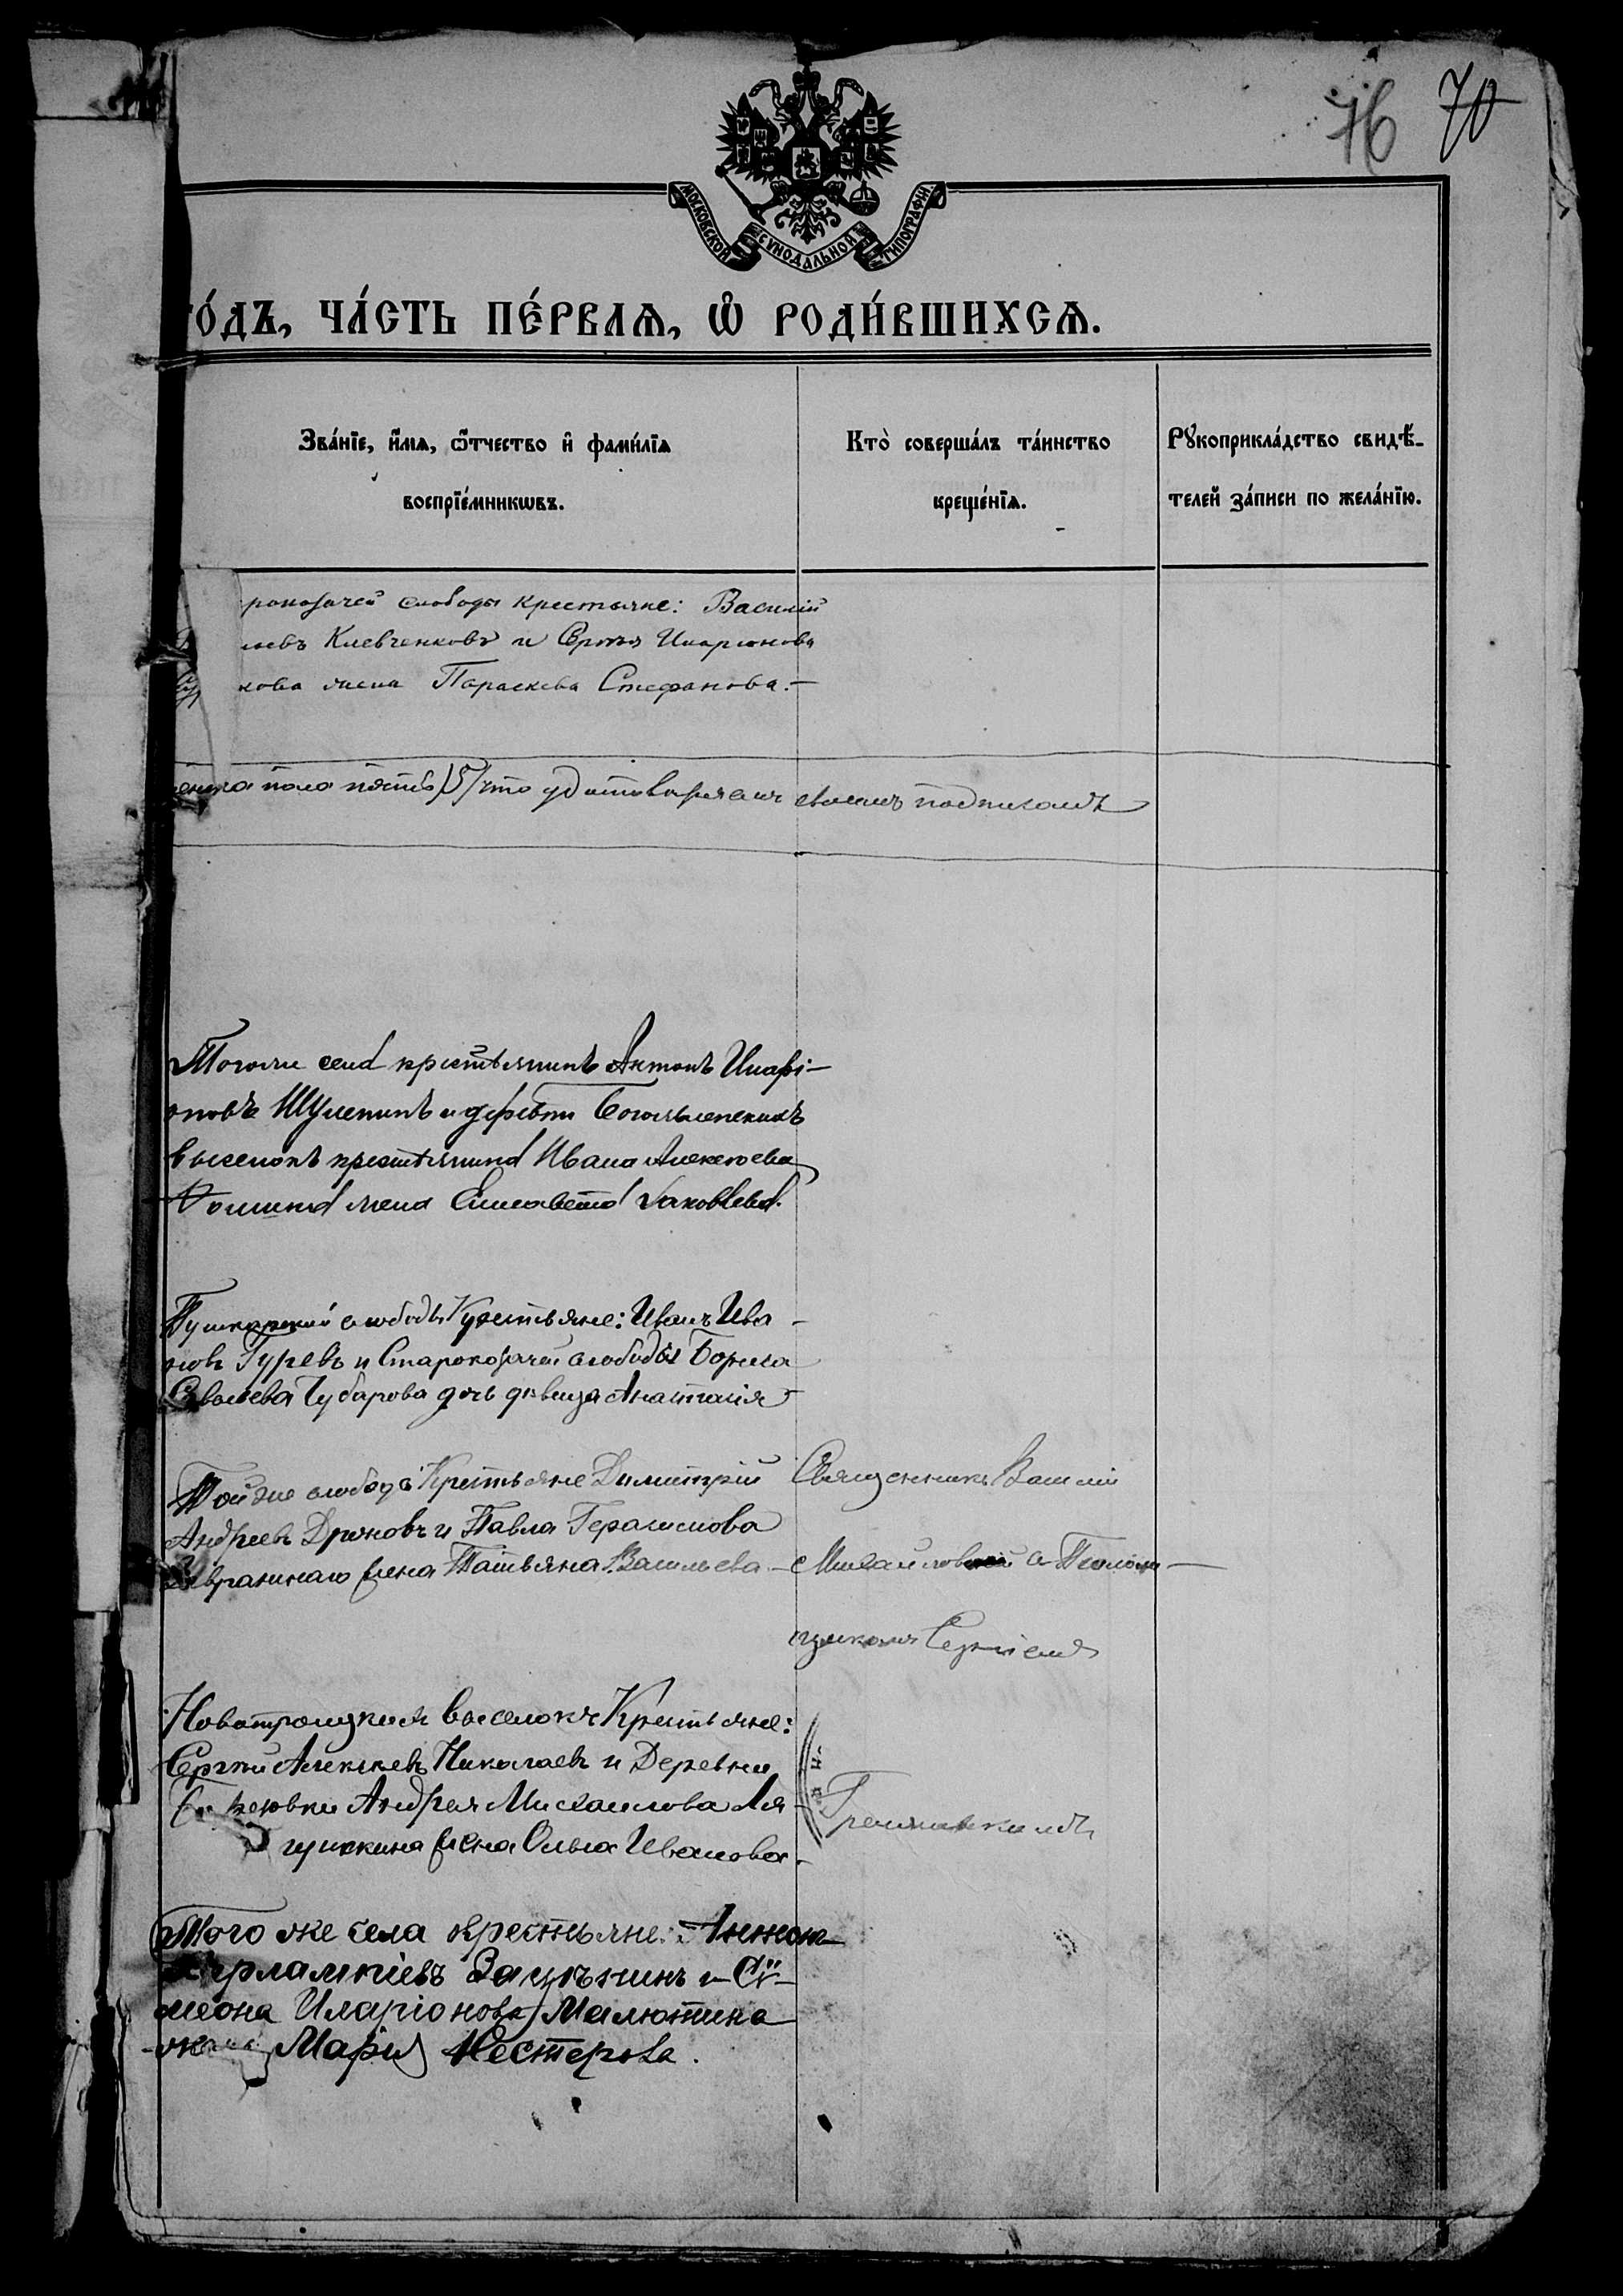 76 70
МОСКОВСКОЙ СѴНОДАЛЬНОЙ ТИПОГРАФІИ
го́дъ, ча́сть пе́рваѧ, ѽ роди́вшихсѧ.
Зва́нїе, и҆́мѧ, ѻ҆́тчество и҆ фами́лїѧ
воспрїе́мникѡвъ.
Кто̀ соверша́лъ та́инство
креще́нїѧ.
Рꙋкоприкла́дство свидѣ́-
телей за́писи по жела́нїю.
роказачей слободы крестьяне: Василій
Клевченковъ и Иларіонова
кова жена Параскева Стефанова.—
пола пять /5/ что удостоверяем своимъ подписомъ
Тогоже села крестьянинъ Антонъ Иларі-
оновъ Шулепинъ и
выселокъ крестьянина Ивана Алексеева
Фомина жена Елисавета Іаковлева.
Пушкарской слободы Крестьяне: Иванъ Ива-
новъ Гуревъ и Староказачей слободы Бориса
Савельева Губарова дочь девица Анастасія
Той же слободы Крестьяне Димитрій
Андреевъ Дроновъ и Павла Герасимова
жена Татьяна Васильева.—
Священникъ Василій
Михайловской с Псалом-
щикомъ Сергіемъ
Новотроицкихъ выселокъ Крестьяне:
Сергій Алексеевъ Николаевъ и Деревни
Андрея Михаилова Ля-
гушкина жена Ольга Иванова.
Того же села крестьяне: Антонъ
Харлампіевъ и Сѵ-
меона Иларіонова Малютина
жена Марія Нестерова.